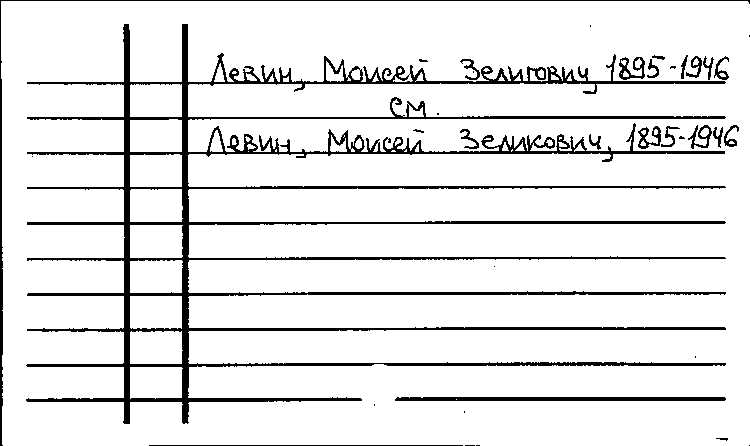 Левин, Моисей Зелигович, 1895-1946
см.
Левин, Моисей Зеликович, 1895-1946